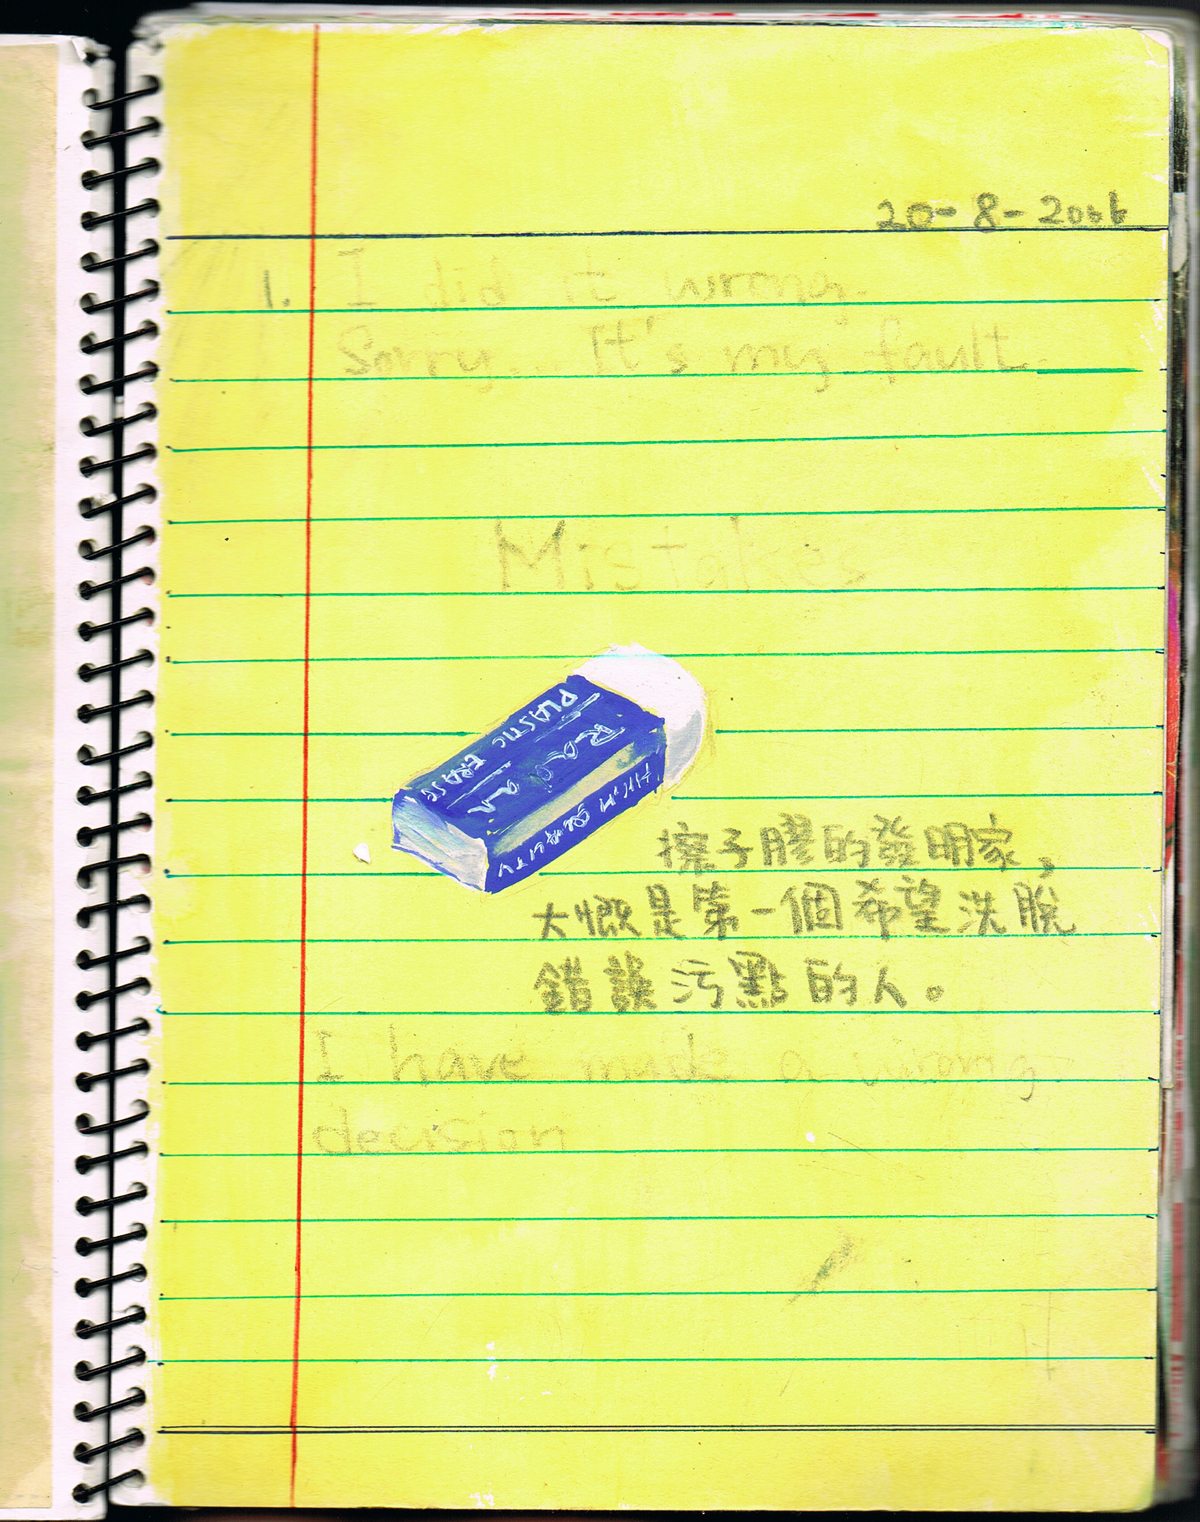 20-8-2006
1. I did it wrong.
Sorry... It's my fault.
Mistakes
PLASTIC ERASE
HIGH QUALITY
擦子膠的發明家，
大慨是第一個希望洗脫
錯誤污點的人。
I have made a wrong
decision